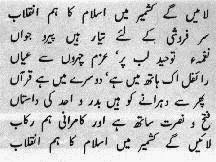 لائیں گے کشمیر میں اسلام کا ہم انقلاب
سر فروشی کے لئے تیار ہیں پیرو جواں
نغمۂ توحید لب پر، عزم چہروں سے عیاں
رائفل اک ہاتھ میں ہے، دوسرے میں ہے قرآں
پھر سے دہرانے کو ہیں بدر و احد کی داستاں
فتح و نصرت ساتھ ہے اور کامرانی ہم رکاب
لائیں گے کشمیر میں اسلام کا ہم انقلاب